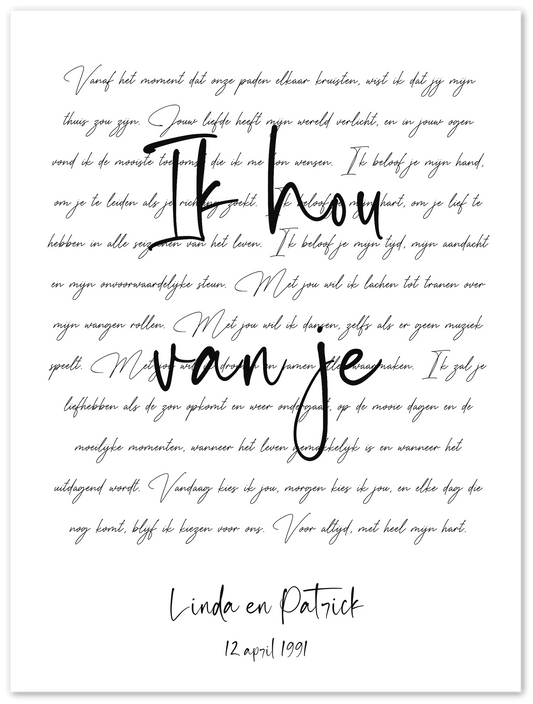 Vanaf het moment dat onze paden elkaar kruisten, wist ik dat jij mijn
thuis zou zijn. Jouw liefde heeft mijn wereld verlicht, en in jouw ogen
vond ik de mooiste toekomst die ik me kon wensen. Ik beloof je mijn hand,
om je te leiden als je richting zoekt. Ik beloof je mijn hart, om je lief te
hebben in alle seizoenen van het leven. Ik beloof je mijn tijd, mijn aandacht
en mijn onvoorwaardelijke steun. Met jou wil ik lachen tot tranen over
mijn wangen rollen. Met jou wil ik dansen, zelfs als er geen muziek
speelt. Met jou wil ik dromen en samen alles waarmaken. Ik zal je
liefhebben als de zon opkomt en weer ondergaat, op de mooie dagen en de
moeilijke momenten, wanneer het leven gemakkelijk is en wanneer het
uitdagend wordt. Vandaag kies ik jou, morgen kies ik jou, en elke dag die
nog komt, blijf ik kiezen voor ons. Voor altijd, met heel mijn hart.
Ik hou
van je
Linda en Patrick
12 april 1991